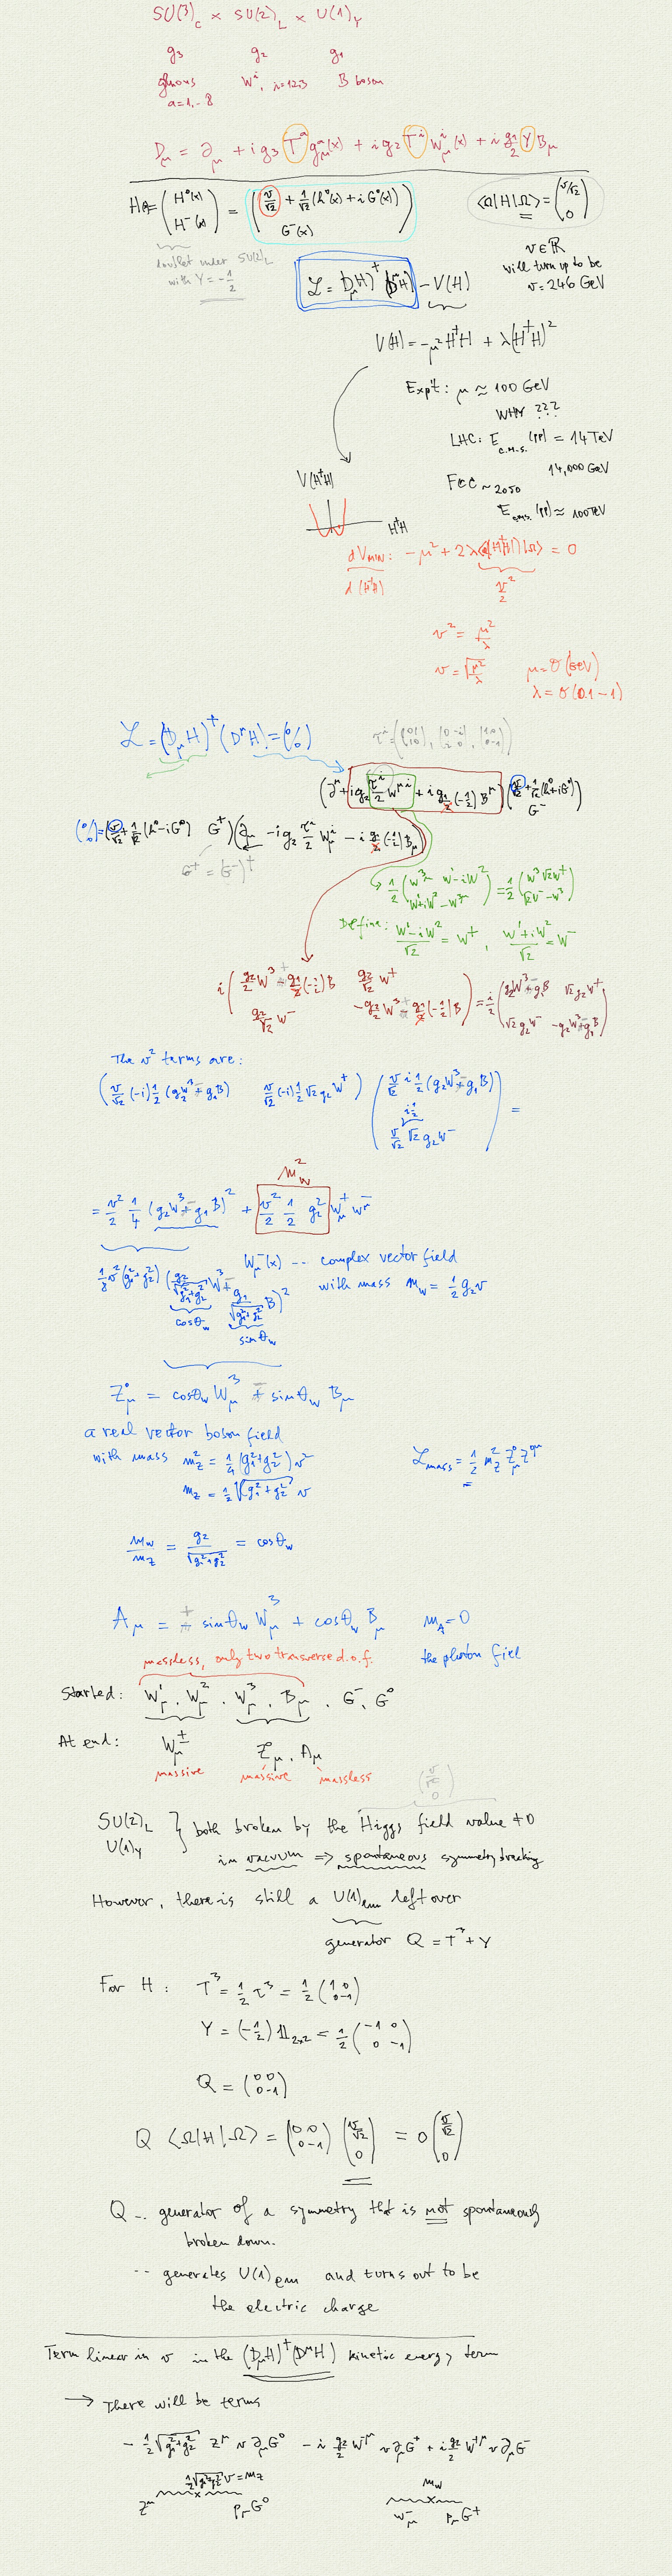 SU(3)_c × SU(2)_L × U(1)_Y
g₃ g₂ g₁
gluons a=1..8 Wⁱ, i=1,2,3 B boson
D_μ = ∂_μ + i g₃ T^a g^a_μ(x) + i g₂ T^i W^i_μ(x) + i g₁/2 Y B_μ
H(x) = (H⁰(x) H⁻(x)) = (v/√2 + 1/√2 (h⁰(x) + i G⁰(x)) G⁻(x)) ⟨Ω|H|Ω⟩ = (v/√2 0)
doublet under SU(2)_L
with Y = -1/2
v ∈ ℝ
will turn up to be
v = 246 GeV
ℒ = (D_μ H)† (D^μ H) - V(H)
V(H) = -μ² H†H + λ(H†H)²
Exp't: μ ≈ 100 GeV
WHY ???
LHC: E_C.M.S. (pp) = 14 TeV
14,000 GeV
FCC ~ 2050
E_c.m.s. (pp) ≈ 100 TeV
V(H†H)
H†H
dV_MIN / d(H†H) : -μ² + 2λ⟨Ω|H†H|Ω⟩ = 0
v²/2
v² = μ²/λ
v = √(μ²/λ) μ = O(GeV)
λ = O(0.1 - 1)
ℒ = (D_μ H)† (D^μ H) = (%) τⁱ = ((0 1 1 0), (0 -i i 0), (1 0 0 -1))
(∂^μ + i g₂ τⁱ/2 W^μi + i g₁ (-1/2) B^μ) (v/√2 + 1/√2 (h⁰ + iG⁰) G⁻)
(%) = (v/√2 + 1/√2 (h⁰ - iG⁰) G⁺) (∂_μ - i g₂ τⁱ/2 Wⁱ_μ - i g₁ (-1/2) B_μ)
G⁺ = (G⁻)†
→ 1/2 (W³ W¹-iW² W¹+iW² -W³) = 1/2 (W³ √2W⁺ √2W⁻ -W³)
Define: (W¹-iW²)/√2 = W⁺, (W¹+iW²)/√2 = W⁻
i (g₂/2 W³ + g₁(-1/2)B g₂/√2 W⁺ g₂/√2 W⁻ -g₂/2 W³ + g₁(-1/2)B) = i/2 (g₂W³ - g₁B √2 g₂W⁺ √2 g₂W⁻ -g₂W³ - g₁B)
The v² terms are:
(v/√2 (-i) 1/2 (g₂W³ - g₁B) v/√2 (-i) 1/2 √2 g₂ W⁺) (v/√2 i 1/2 (g₂W³ - g₁B) v/√2 i 1/2 √2 g₂W⁻) =
m_W²
= v²/2 1/4 (g₂W³ - g₁B)² + v²/2 1/2 g₂² W⁺_μ W⁻^μ
1/8 v² (g₁²+g₂²) (g₂/√(g₁²+g₂²) W³ - g₁/√(g₁²+g₂²) B)²
cosθ_w sinθ_w
W⁻_μ(x) -- complex vector field
with mass m_W = 1/2 g₂ v
Z⁰_μ = cosθ_w W³_μ - sinθ_w B_μ
a real vector boson field
with mass m_Z² = 1/4 (g₁²+g₂²) v² ℒ_mass = 1/2 m_Z² Z⁰_μ Z^0μ
m_Z = 1/2 √(g₁²+g₂²) v
m_W/m_Z = g₂/√(g₁²+g₂²) = cosθ_w
A_μ = + sinθ_w W³_μ + cosθ_w B_μ m_A = 0
the photon field
massless, only two transverse d.o.f.
Started: W¹_μ, W²_μ, W³_μ, B_μ, G⁻, G⁰
At end: W^±_μ Z_μ, A_μ
massive massive massless
(v/√2 0)
SU(2)_L U(1)_Y } both broken by the Higgs field value ≠ 0
in vacuum ⇒ spontaneous symmetry breaking
However, there is still a U(1)_em left over
generator Q = T³ + Y
For H: T³ = 1/2 τ³ = 1/2 (1 0 0 -1)
Y = (-1/2) 𝟙_2x2 = 1/2 (-1 0 0 -1)
Q = (0 0 0 -1)
Q ⟨Ω|H|Ω⟩ = (0 0 0 -1) (v/√2 0) = 0 (v/√2 0)
Q -- generator of a symmetry that is not spontaneously
broken down.
-- generates U(1)_em and turns out to be
the electric charge
Term linear in v in the (D_μH)†(D^μH) kinetic energy term
→ There will be terms
- 1/2 √(g₁²+g₂²) Z^μ v ∂_μG⁰ - i g₂/2 W^-μ v ∂_μG⁺ + i g₂/2 W^+μ v ∂_μG⁻
1/2 √(g₁²+g₂²) v = m_Z m_W
Z^μ p_μG⁰ W⁻_μ p_μG⁺